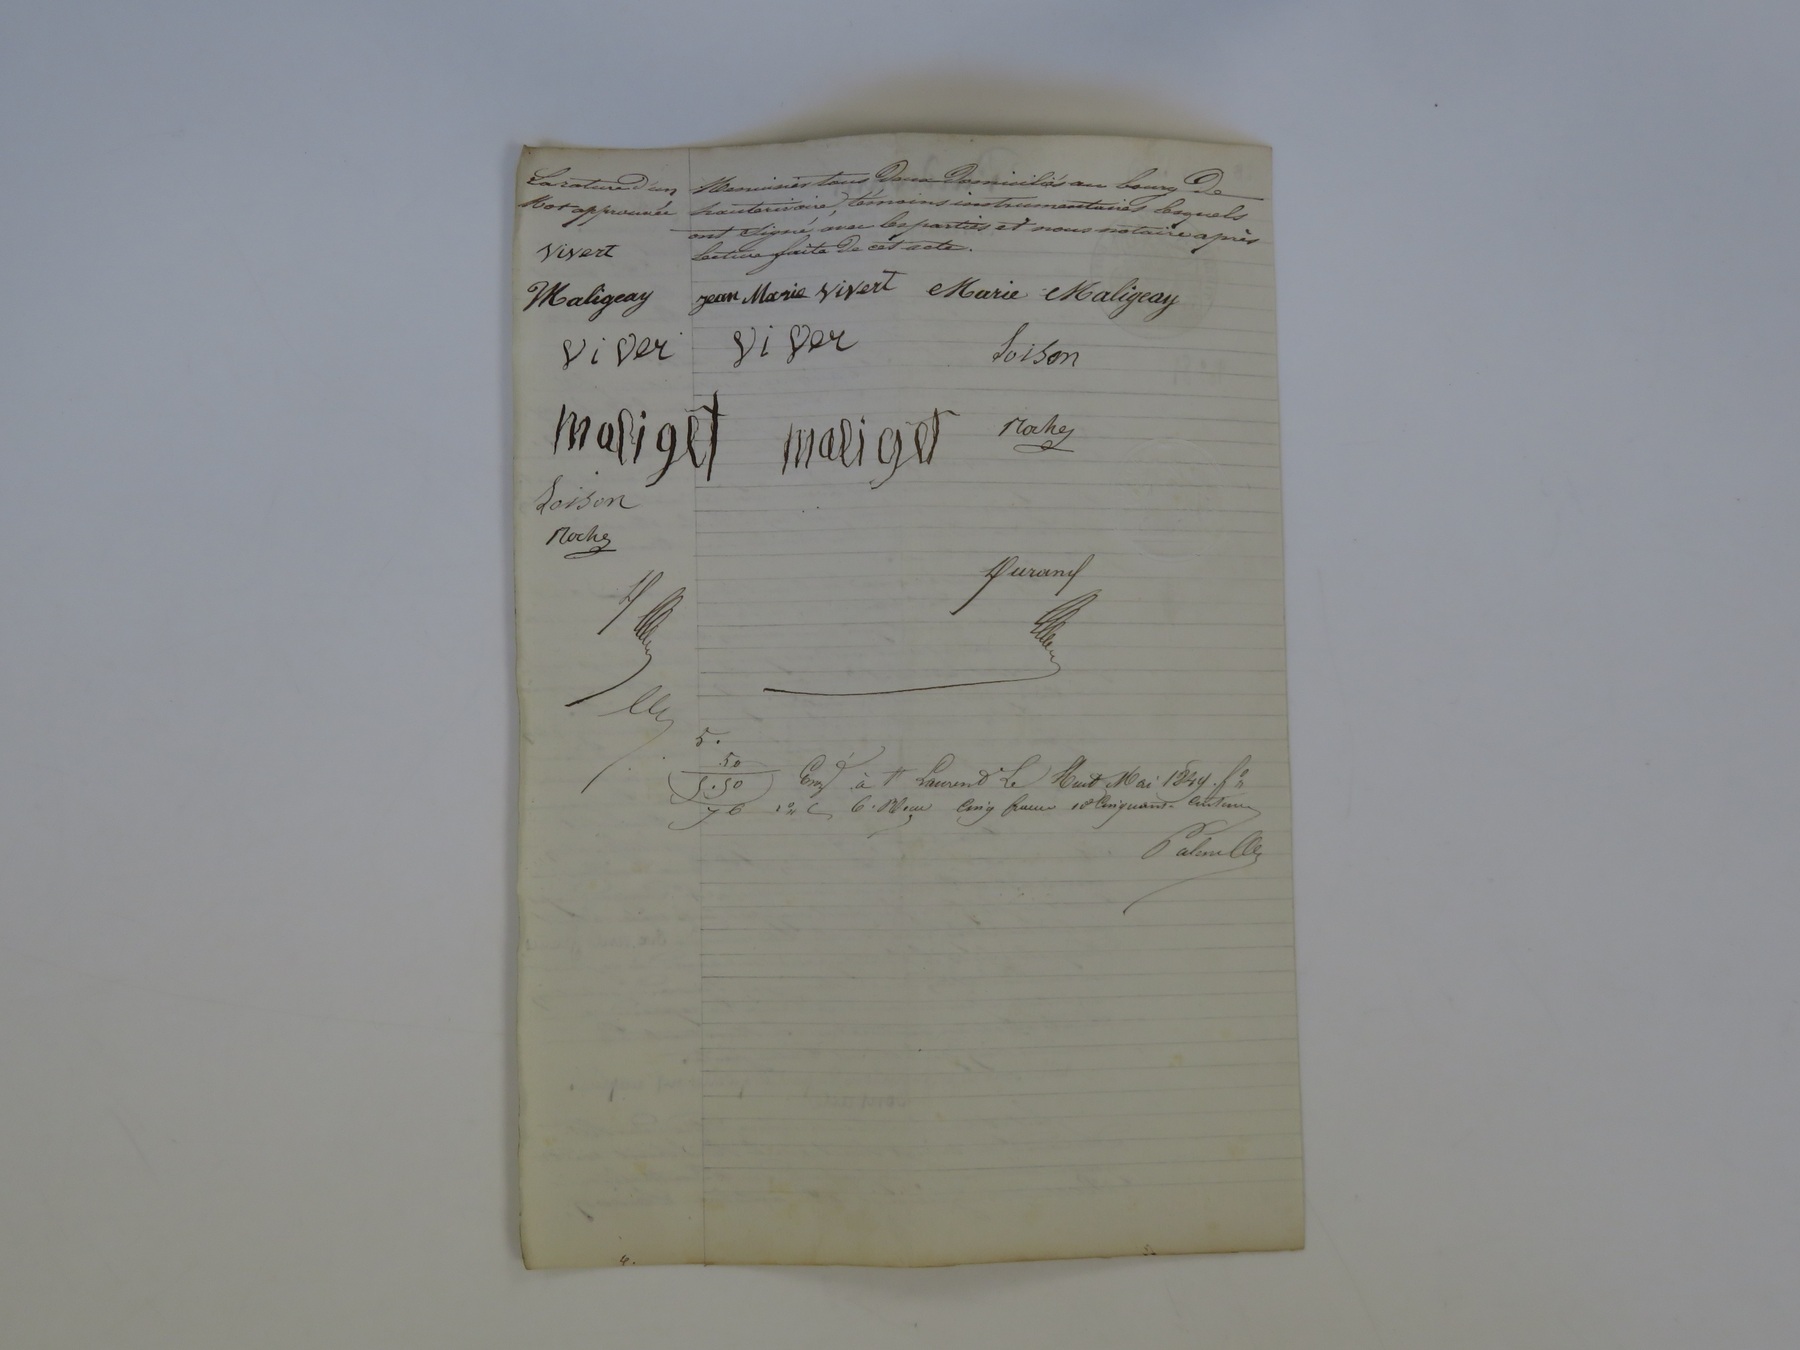 La rature d'un
Mot approuvée
Vivert
Maligeay
viver
maliget
Loison
Roche
Menuisier tous deux domiciliés au bourg de
hauterivoire, témoins instrumentaires lesquels
ont signé, avec les parties et nous notaire après
lecture faite de cet acte.
jean Marie Vivert Marie Maligeay
viver Loison
maliget Roche
Durand
5.
50
5.50
Laurent Le Huit Mai 1849. f°
cinq francs et cinquante centimes